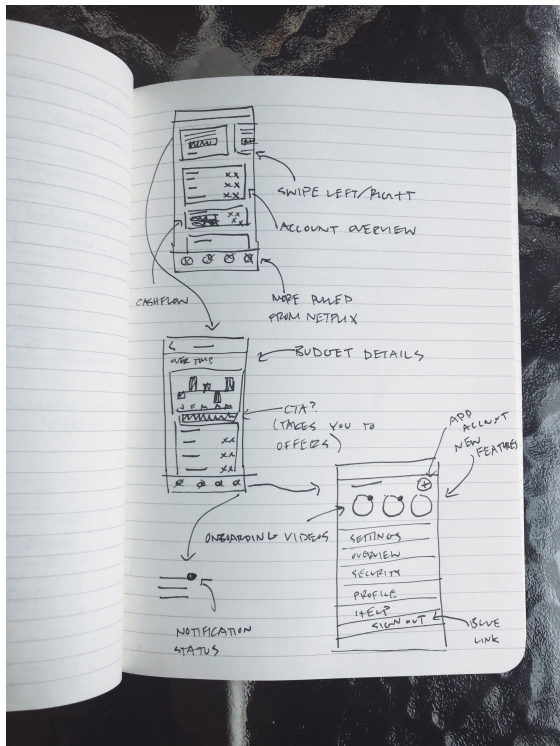 SWIPE LEFT/RIGHT
ACCOUNT OVERVIEW
CASHFLOW
MORE PULLED
FROM NETFLIX
BUDGET DETAILS
OVER TIME
J F M A M
CTA?
(TAKES YOU TO
OFFERS)
APP
ACCOUNT
NEW
FEATURES
ONBOARDING VIDEOS
SETTINGS
OVERVIEW
SECURITY
PROFILE
HELP
SIGN OUT
BLUE
LINK
NOTIFICATION
STATUS